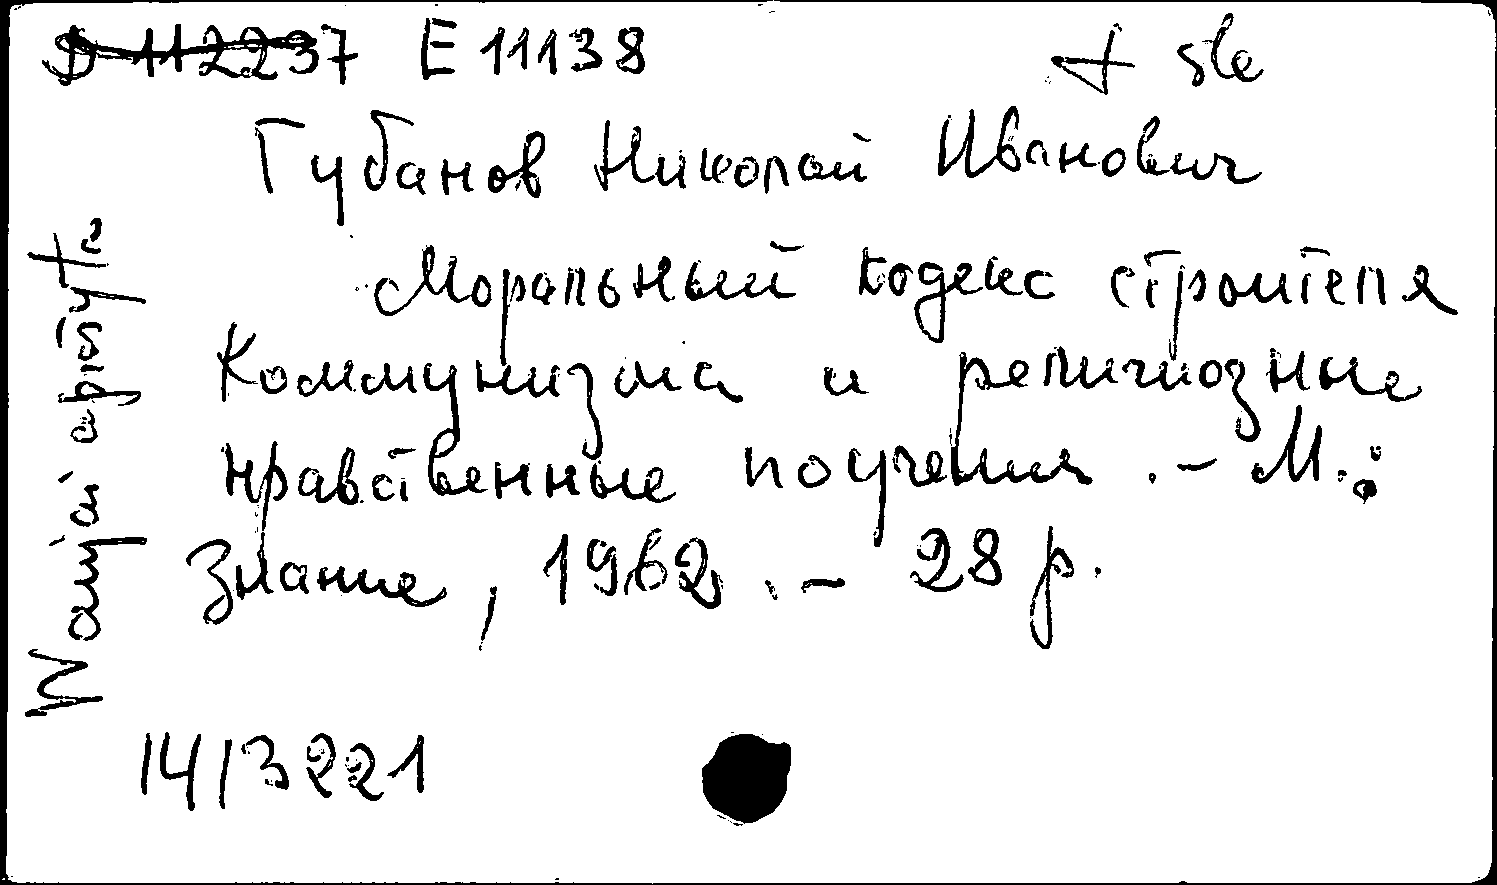 D 112237 E 11138
Губанов Николай Иванович
Моральный кодекс строителя
Коммунизма и религиозные
нравственные поучения. - М.:
Знание, 1962. - 28 p.
14/3221